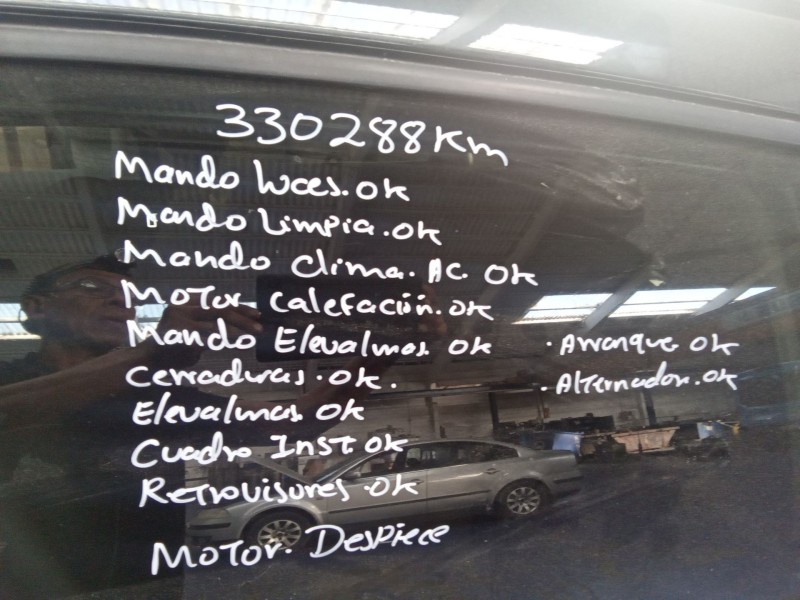 330288Km
Mando luces. ok
Mando limpia. ok
Mando clima. AC. ok
Motor calefación. ok
Mando Elevalunas. ok
Cerraduras. ok.
Elevalunas. ok
Cuadro Inst ok
Retrovisores. ok
Motor. Despiece
. Arranque ok
. Alternador. ok